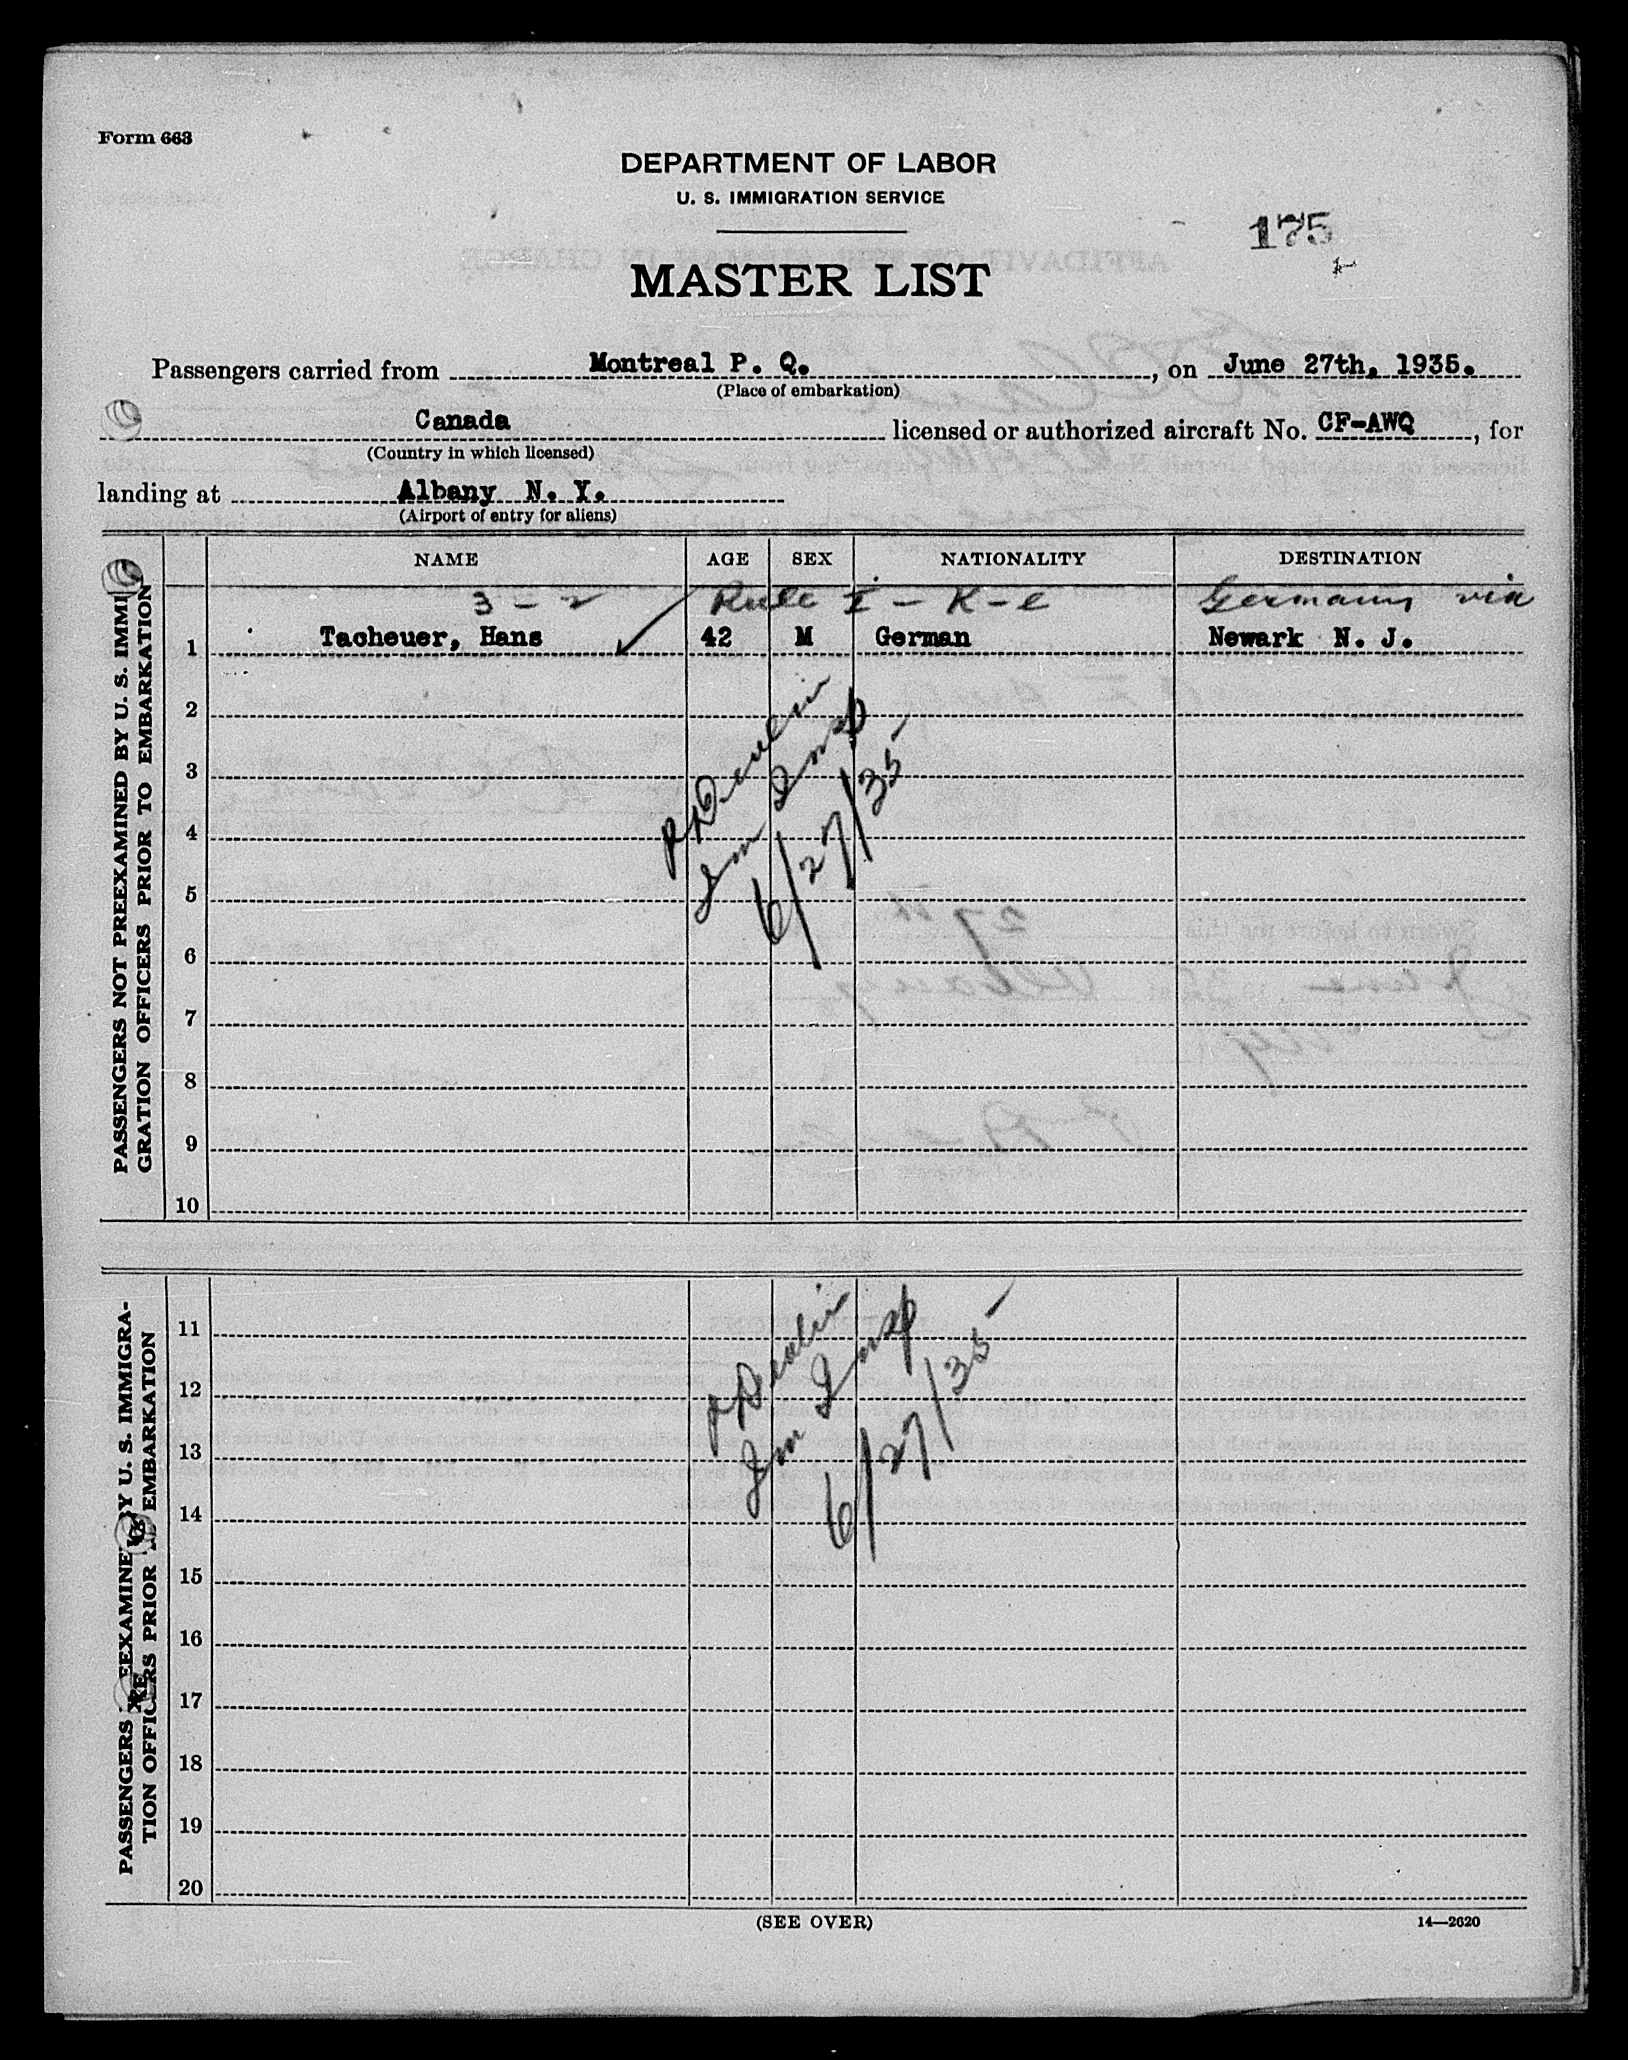 Form 663
DEPARTMENT OF LABOR
U. S. IMMIGRATION SERVICE
175
MASTER LIST
Passengers carried from Montreal P. Q., on June 27th, 1935.
(Place of embarkation)
Canada licensed or authorized aircraft No. CF-AWQ, for
(Country in which licensed)
landing at Albany N. Y.
(Airport of entry for aliens)
PASSENGERS NOT PREEXAMINED BY U. S. IMMI
GRATION OFFICERS PRIOR TO EMBARKATION
NAME AGE SEX NATIONALITY DESTINATION
3 - 2 Rule I - K - e Germany via
1 Tacheuer, Hans 42 M German Newark N. J.
2
3
4
5
6
7
8
9
10
R Devlin
Im Insp
6/27/35
PASSENGERS EEXAMINE BY U. S. IMMIGRA-
TION OFFICERS PRIOR EMBARKATION
11
12
13
14
15
16
17
18
19
20
R Devlin
Im Insp
6/27/35
(SEE OVER)
14—2620